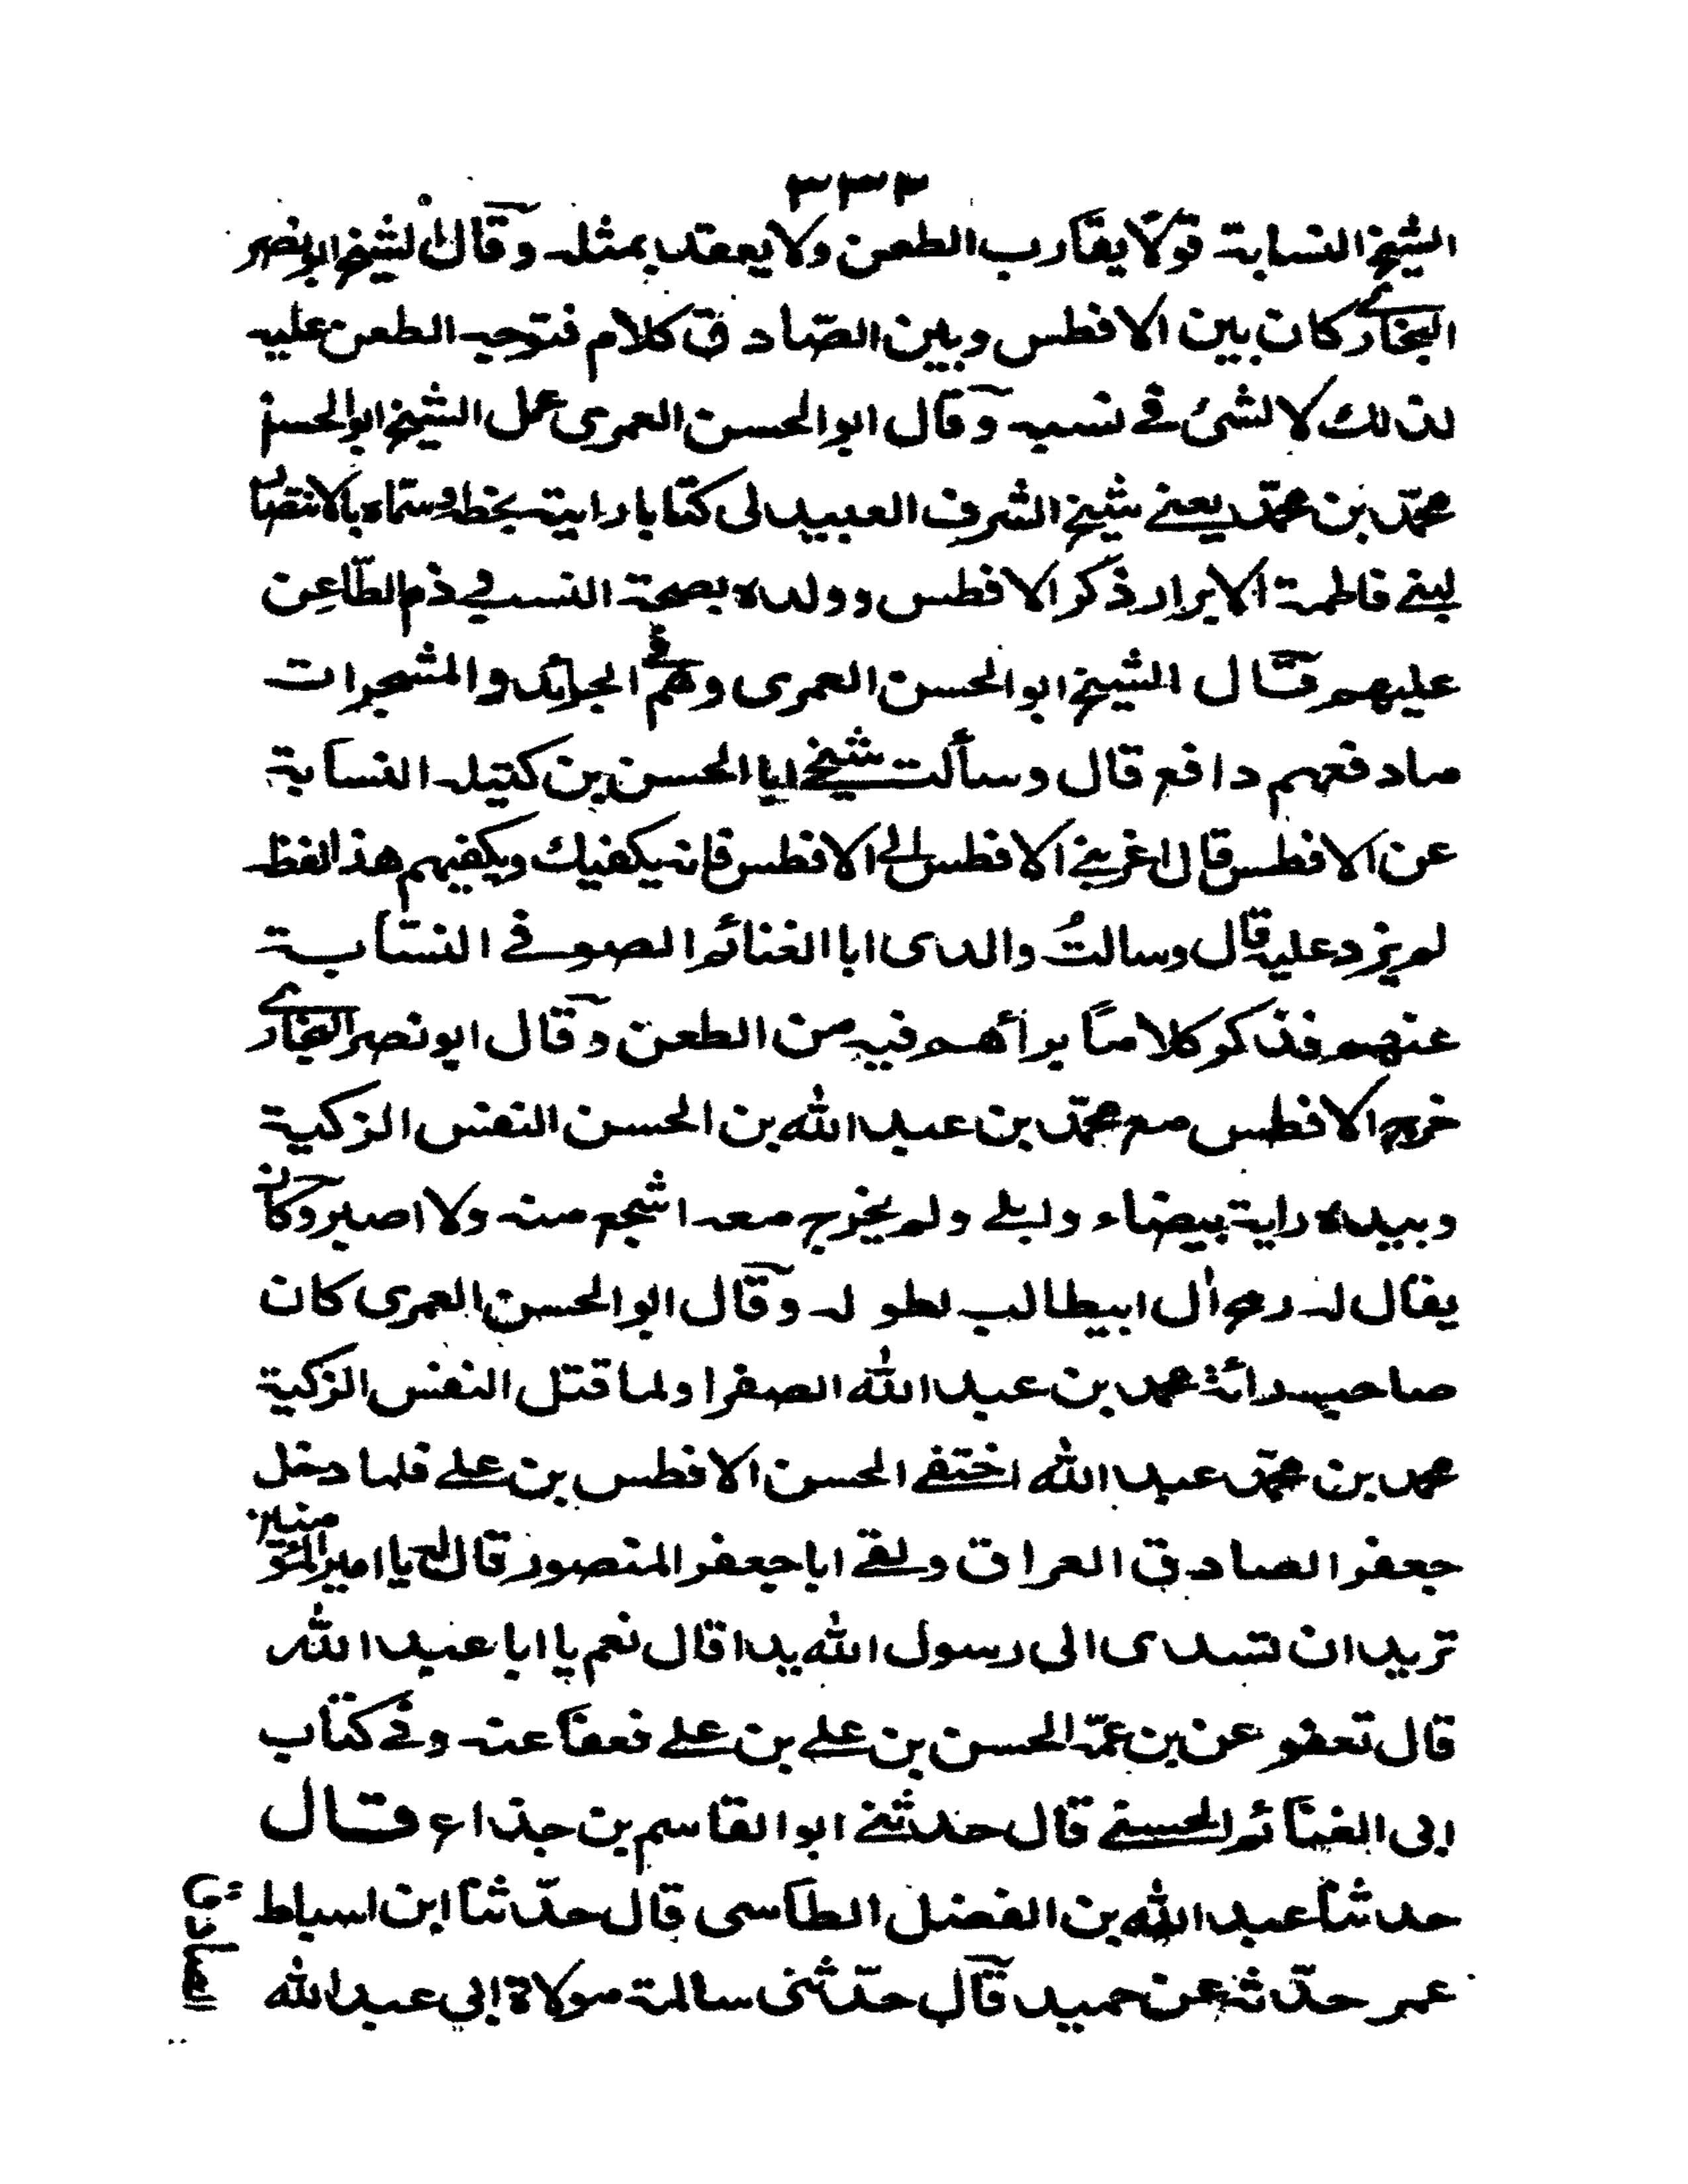 ٣٣٣
الشيخ النسابة قولا يقارب الطعن ولا يعقد بمثله وقال الشيخ ابو نصر
البخارى كان بين الافطس وبين الصّادق كلام فتوجه الطعن عليه
لذلك لا لشئ فى نسبه وقال ابو الحسن العمرى عمل الشيخ ابو الحسن
محمّد بن محمّد يعنى شيخ الشرف العبيدلى كتابا رايته بخطه وسمّاه بالانتصار
لبنى فاطمة الابرار ذكر الافطس وولده بصحة النسب فى ذم الطّاعن
عليهم قال الشيخ ابو الحسن العمرى وهم فى الجرائد والمشجرات
مادفعهم دافع قال وسألت شيخى ابا الحسن بن كتيله النسابة
عن الافطس قال اغر بنى الافطس الى الافطس فانه يكفيك ويكفيهم هذا لفظه
لم يزد عليه قال وسالتُ والدى ابا الغنائم الصوفى النسّابة
عنهم فذكر كلاماً برأهم فيه من الطعن وقال ابو نصر البخارى
خرج الافطس مع محمّد بن عبد الله بن الحسن النفس الزكية
وبيده راية بيضاء وابلى ولم يخرج معه اشجع منه ولا اصبر وكان
يقال له رمح اٰل ابيطالب لطوله وقال ابو الحسن العمرى كان
صاحب رائة محمد بن عبد الله الصفرا ولما قتل النفس الزكية
محمد بن محمّد عبد الله اختفى الحسن الافطس بن على فلما دخل
جعفر الصادق العراق ولقى ابا جعفر المنصور قال له يا امير المؤمنين
تريد ان تسدى الى رسول الله يدا قال نعم يا ابا عبد الله
قال تعفو عن بن عمّه الحسن بن على بن على فعفا عنه وفى كتاب
ابى الغنائم الحسنى قال حدثنى ابو القاسم بن جذاع قال
حدثنا عبد الله بن الفضل الطاسى قال حدّثنا ابن اسباط
عمر حدّثه عن حميد قال حدّثنى سالمة مولاة ابى عبد الله